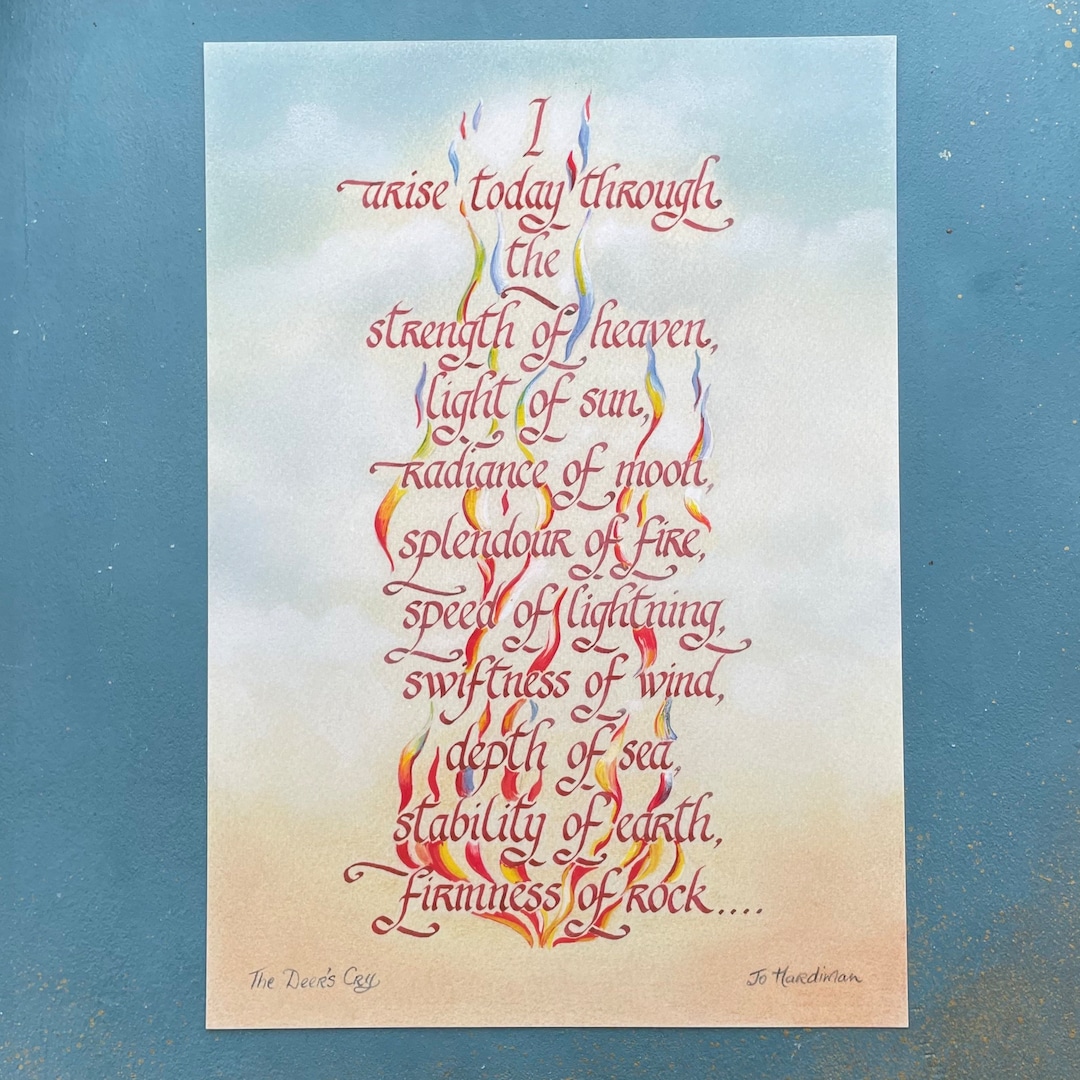 I
arise today through
the
strength of heaven,
light of sun,
radiance of moon,
splendour of fire,
speed of lightning,
swiftness of wind,
depth of sea,
stability of earth,
firmness of rock....
The Deer's Cry
Jo Hardiman